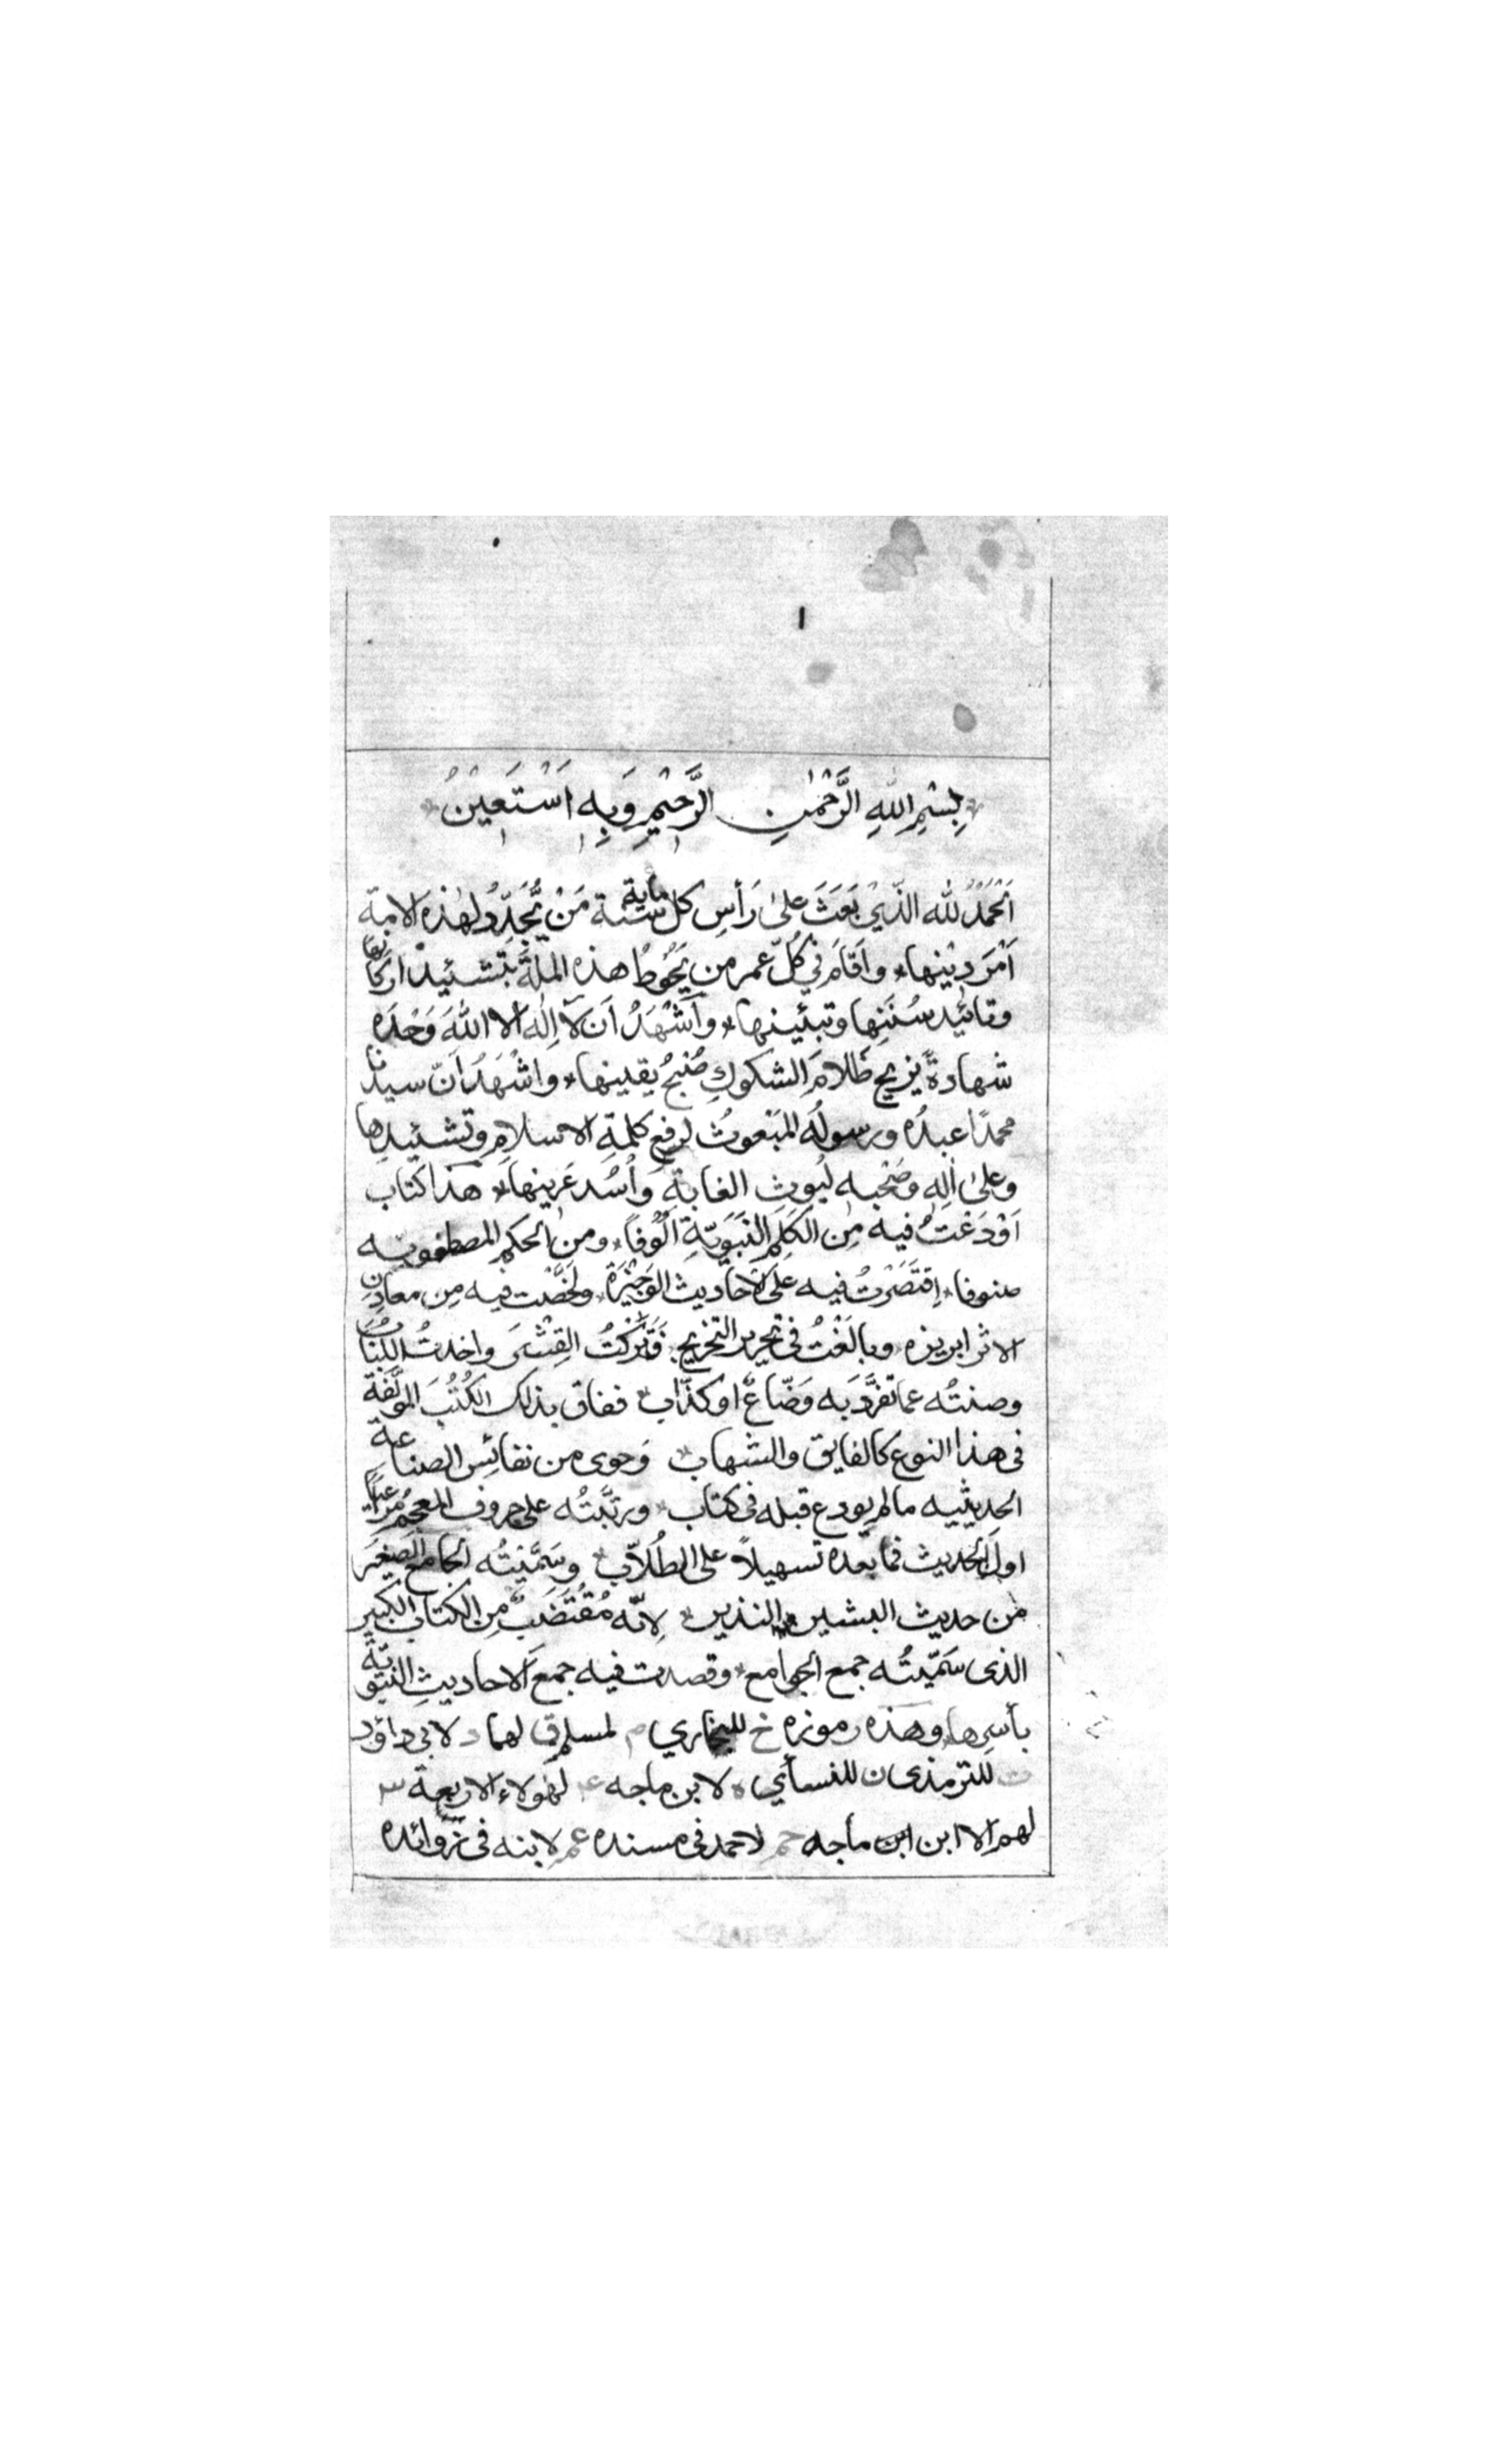 ١
بِسْمِ اللهِ الرَّحْمٰنِ الرَّحِيْمِ وَبِهِ اَسْتَعِيْنُ
اَلْحَمْدُ لله الذّيْ بَعَثَ علىٰ رَأسِ كل ماية سنة مَنْ يُّجَدِّدُ لهٰذه الامة
اَمْرَ دِيْنها * واَقَامَ فِي كُلّ عصر من يَحُوْطُ هذه الملّةَ بتشئيد اركانها
وتائيد سُنَنِها وتبئينها * وأَشْهَدُ اَن لآ اِلٰه الا اللهَ وَحْدَه
شهادةً يزيح ظَلامَ الشكوكِ صُبْحُ يقينها * واشْهَدُ اَنّ سيدنا
محمدًا عبدُه ورسولُه المَبْعوثُ لرفع كلمةِ الاسلامِ وتشئيدها
وعلىٰ اٰلِهِ وصَحْبه لُيوثِ الغابةِ وَاُسُدِ عَرينها * هذا كتاب
اَوْدَعْتُ فيه مِن الكَلِمِ النَّبَوِيّةِ اُلُوْفًا * ومن الحكم المصطفويه
صنوفا * اِقْتَصَرْتُ فيه على الاَحَاديث الوَجِيْزَة * ولَخَّصْت فيه مِن معادِنِ
الاثر ابريزه * وبالَغْتُ فى تحرير التخريج * فَتَركْتُ القِشْرَ واخذتُ اللُّبَابَ
وصنتُه عما تفرَّدَ بَه وَضّاعٌ او كذّاب * ففاق بذلك الكُتُبَ المولَّفَة
فى هذا النوع كالفايق والشهاب * وَحوى من نفائِس الصناعة
الحديثيه مالم يودع قبله فى كتاب * ورتَّبتُه على حروف المعجم مُراعيًا
اولَ الحَديث فما بعده تسهيلاً على الطُلاّب * وسَمَّيْتُه الجامع الصغيَر
من حديث البشير النذير * لِانّه مُقْتَضَبٌ مِن الكتاب الكبير
الذى سَمّيتُه جمع الجوامع * وقصدت فيه جمعَ الاحاديثِ النبَويّة
بأسرِها * وهذه رموزه خ للبخاري م لمسلم ق لهما د لابى داؤد
ت للترمذى ن للنسأي ه لابن ماجه ع لهٰولاء الاربعة ٣
لهم الا ابن ابن ماجه حم لاحمد فى مسنده عم لابنه فى زوائده